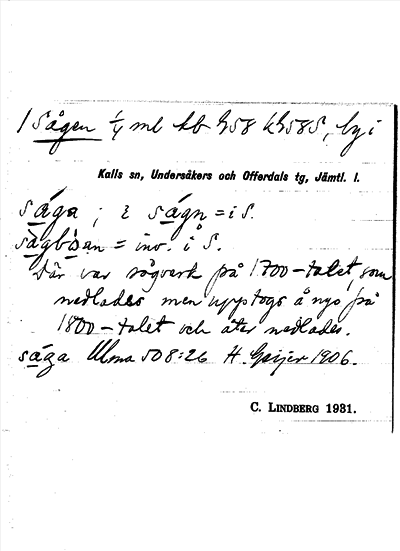 1 Sågen ¼ ml kb 958 k 958S, by i
Kalls sn, Undersåkers och Offerdals tg, Jämtl. l.
såga; i sågn = i S.
sågboan = inv. i S.
Där var sågverk på 1700-talet, som
nedlades men upptogs å nyo på
1800-talet och åter nedlades.
såga Ulma 508:26 H. Geijer 1906.
C. LINDBERG 1931.